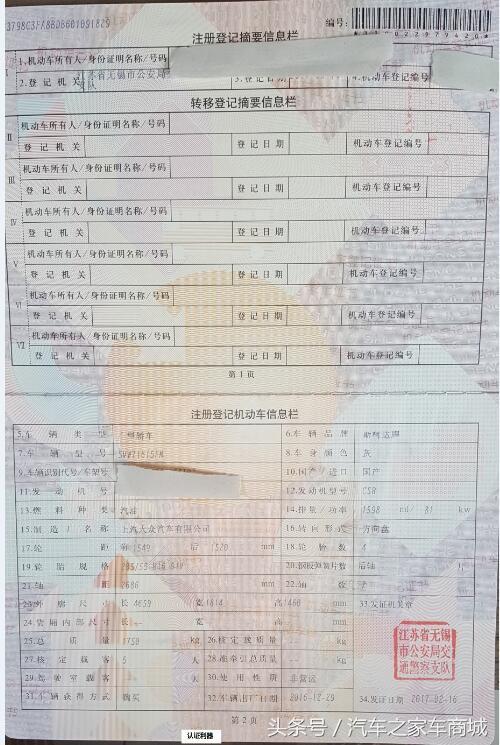 3798C3FA8BDB601091829
编号:
注册登记摘要信息栏
I
1.机动车所有人/身份证明名称/号码
2.登记机关 江苏省无锡市公安局 队 3.登记日期 4.机动车登记编号
转移登记摘要信息栏
II
机动车所有人/身份证明名称/号码
登记机关 登记日期 机动车登记编号
III
机动车所有人/身份证明名称/号码
登记机关 登记日期 机动车登记编号
IV
机动车所有人/身份证明名称/号码
登记机关 登记日期 机动车登记编号
V
机动车所有人/身份证明名称/号码
登记机关 登记日期 机动车登记编号
VI
机动车所有人/身份证明名称/号码
登记机关 登记日期 机动车登记编号
VII
机动车所有人/身份证明名称/号码
登记机关 登记日期 机动车登记编号
第1页
注册登记机动车信息栏
5.车辆类型 轿车 6.车辆品牌 斯柯达牌
7.车辆型号 8.车身颜色 灰
9.车辆识别代号/车架号 10.国产/进口 国产
11.发动机号 12.发动机型号
13.燃料种类 汽油 14.排量/功率 1598 ml/ 81 kw
15.制造厂名称 上汽大众汽车有限公司 16.转向形式 方向盘
17.轮距 前 1549 后 1520 mm 18.轮胎数 4
19.轮胎规格 20.钢板弹簧片数 后轴
21.轴距 2686 mm 22.轴数 2
23.外廓尺寸 长 4659 宽 1814 高 1460 mm 33.发证机关章
24.货厢内部尺寸 长 宽 高 mm
25.总质量 1750 kg 26.核定载质量 -- kg
27.核定载客 5 人 28.准牵引总质量 -- kg
29.驾驶室载客 -- 人 30.使用性质 非营运
31.车辆获得方式 购买 32.车辆出厂日期 2016-12-29 34.发证日期 2017-02-16
江苏省无锡
市公安局交
通警察支队
第2页
认证利器
头条号/汽车之家车商城